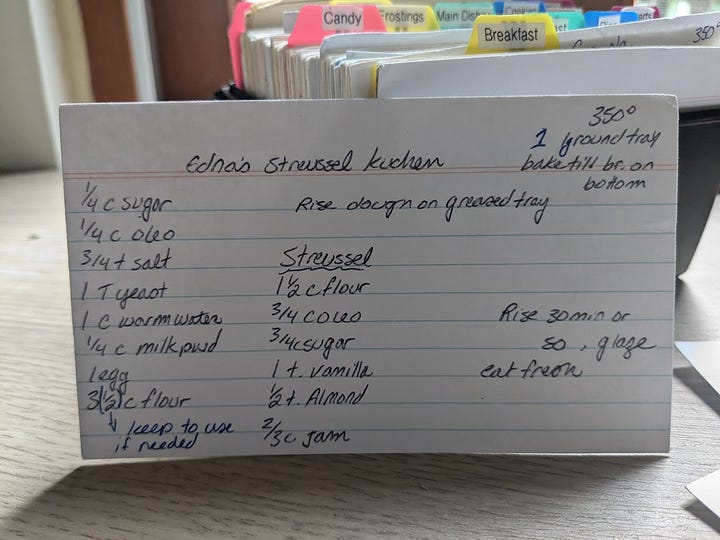 Candy
Frostings
Main Dish
Cookies
Breakfast
350°
350°
1 ground tray
bake till br. on
bottom
Edna's Streussel Kuchen
Rise dough on greased tray
1/4 c sugar
1/4 c oleo
3/4 t salt
1 T yeast
1 c warm water
1/4 c milk pwd
1 egg
3(1/2) c flour
↓ keep to use
if needed
Streussel
1 1/2 c flour
3/4 c oleo
3/4 c sugar
1 t. vanilla
1/2 t. Almond
2/3 c jam
Rise 30 min or
so, glaze
eat fresh